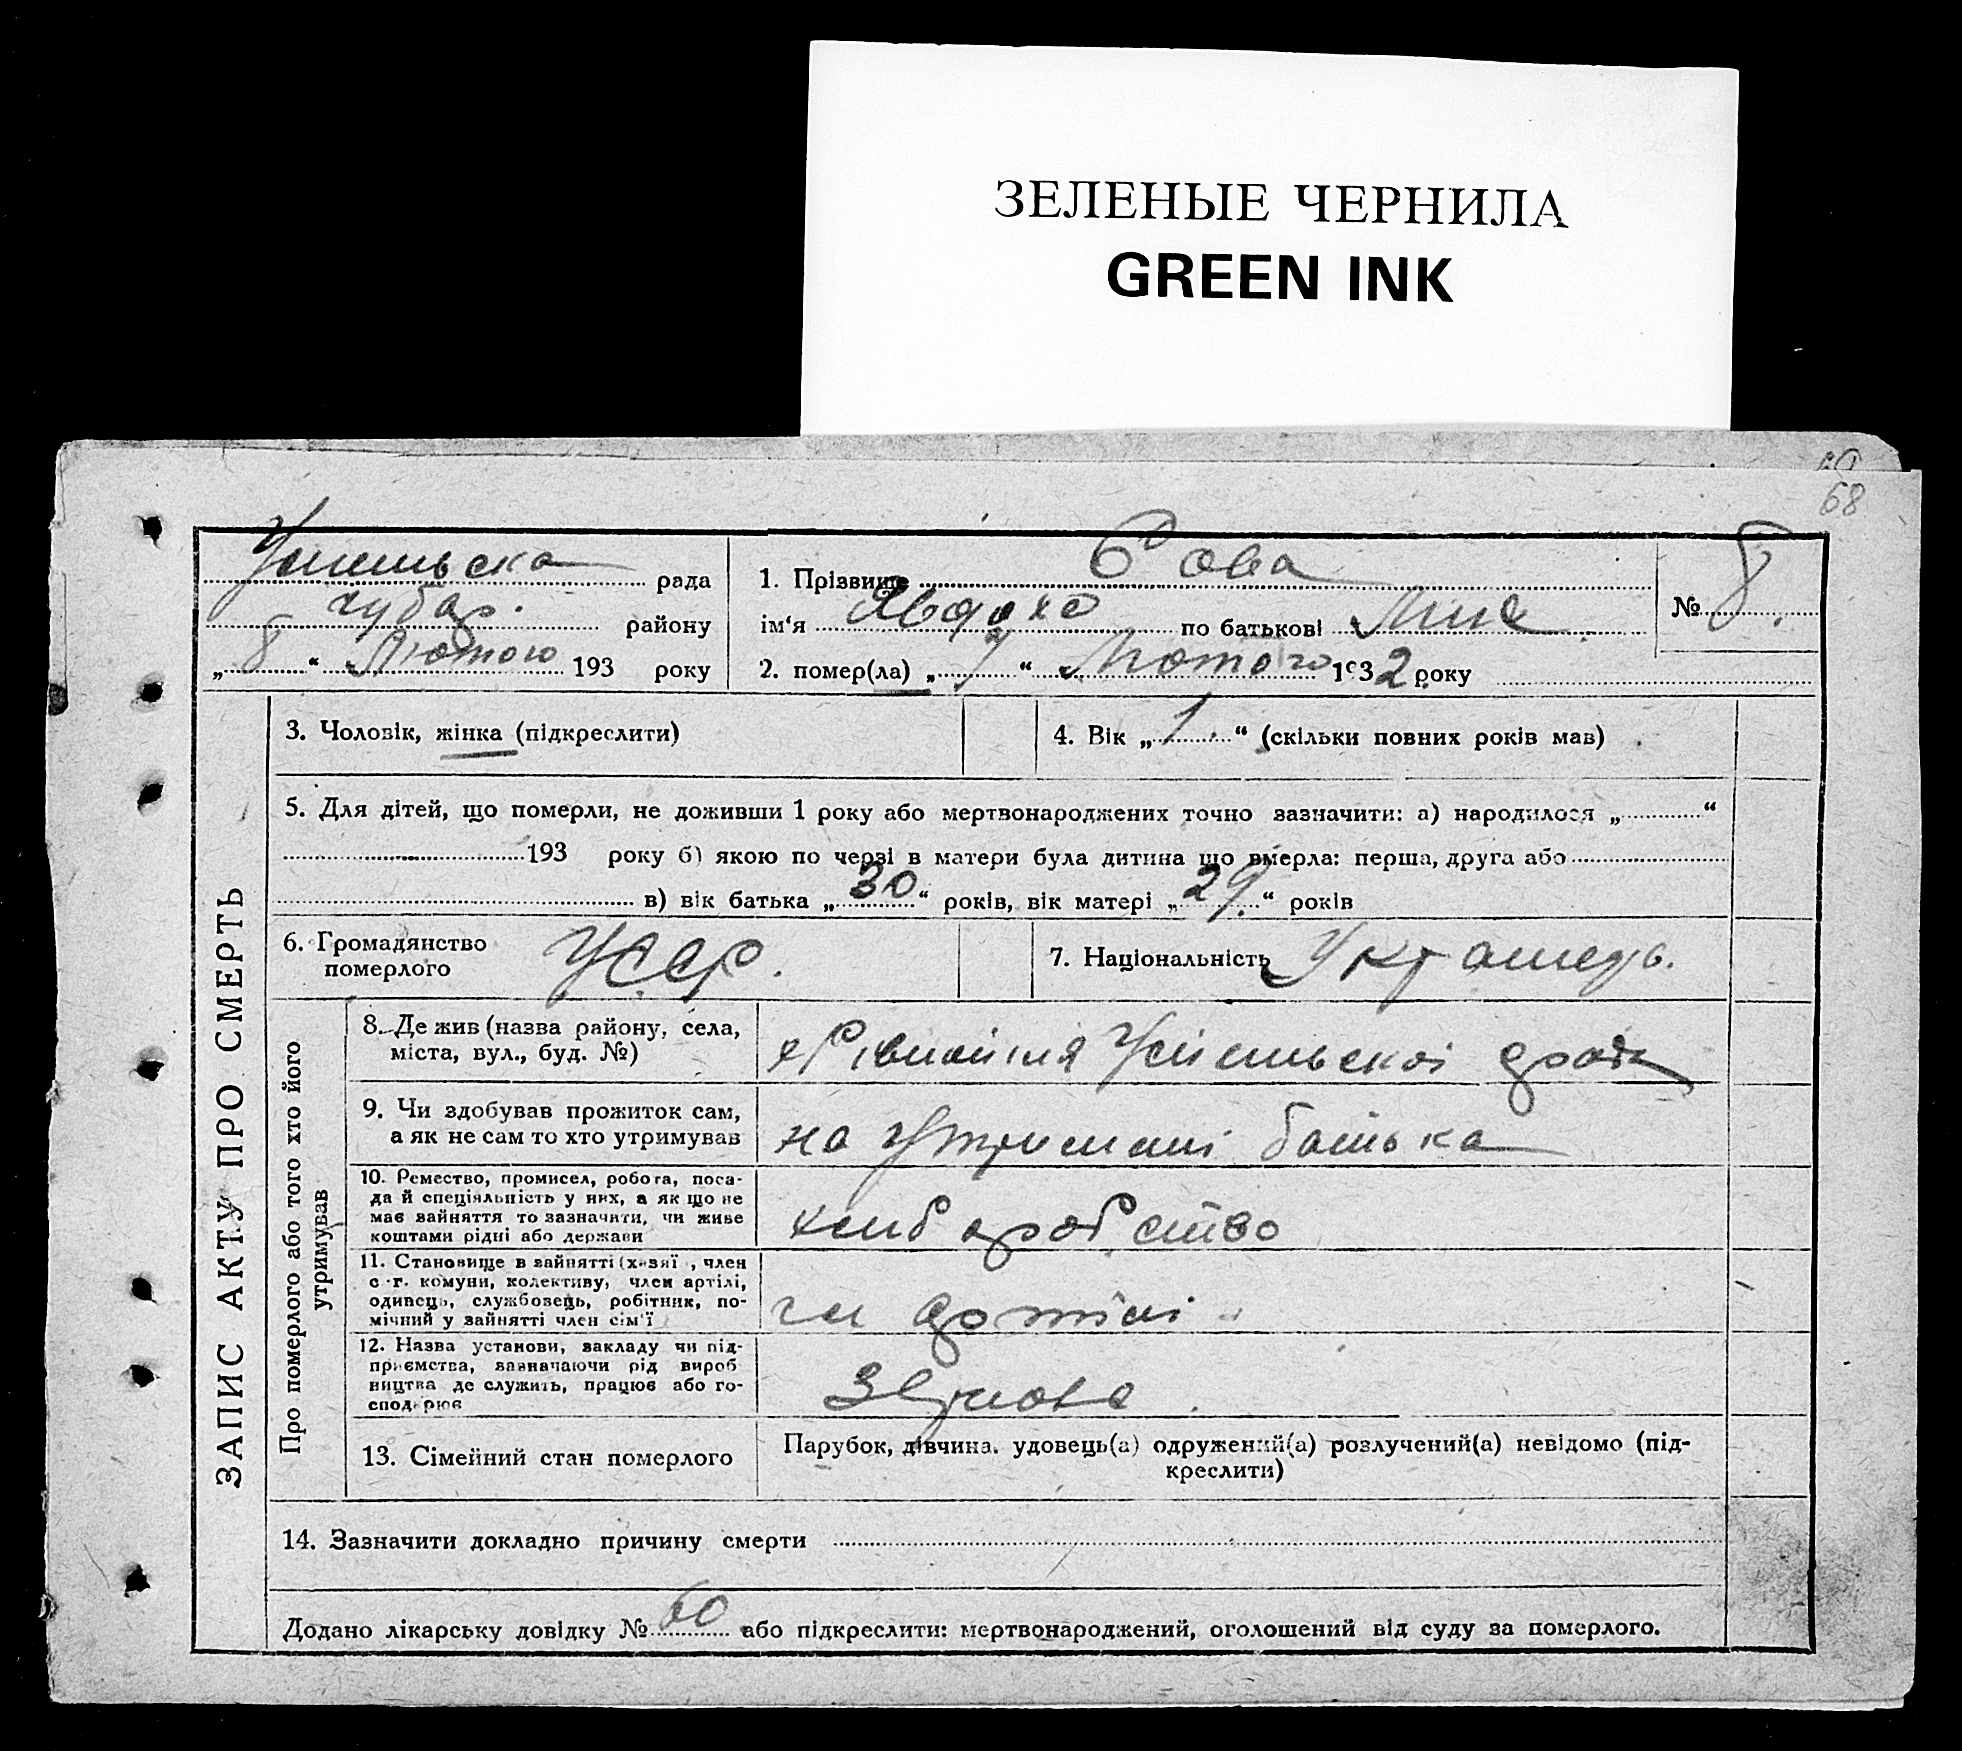 ЗЕЛЕНЫЕ ЧЕРНИЛА
GREEN INK
68
рада
району
„ 8 “ Лютого 193 року
1. Прізвище Сова
ім‘я Явдоха по батькові
2. помер(ла) „ 7 “ Лютого 1932 року
№ 8.
ЗАПИС АКТУ ПРО СМЕРТЬ
3. Чоловік, жінка (підкреслити)
4. Вік „ 1 “ (скільки повних років мав)
5. Для дітей, що померли, не доживши 1 року або мертвонароджених точно зазначити: а) народилося „ “
193 року б) якою по черзі в матери була дитина що вмерла: перша, друга або
в) вік батька „ 30 “ років, вік матері „ 29 “ років
6. Громадянство
померлого
УССР.
7. Національність
Про померлого або того хто його
утримував
8. Де жив (назва району, села,
міста, вул., буд. №)
9. Чи здобував прожиток сам,
а як не сам то хто утримував
на утриманні батька
10. Ремество, промисел, робота, поса-
да й спеціяльність у них, а як що не
має зайняття то зазначити, чи живе
коштами рідні або держави
хліборобство
11. Становище в зайнятті (хазяї , член
с.-г. комуни, колективу, член артілі,
одинець, службовець, робітник, по-
мічний у зайнятті член сім‘ї
12. Назва установи, закладу чи під-
приємства, зазначаючи рід вироб
ництва де служить, працює або го-
сподарює
13. Сімейний стан померлого
Парубок, дівчина, удовець(а) одружений(а) розлучений(а) невідомо (під-
креслити)
14. Зазначити докладно причину смерти
Додано лікарську довідку № 60 або підкреслити: мертвонароджений, оголошений від суду за померлого.